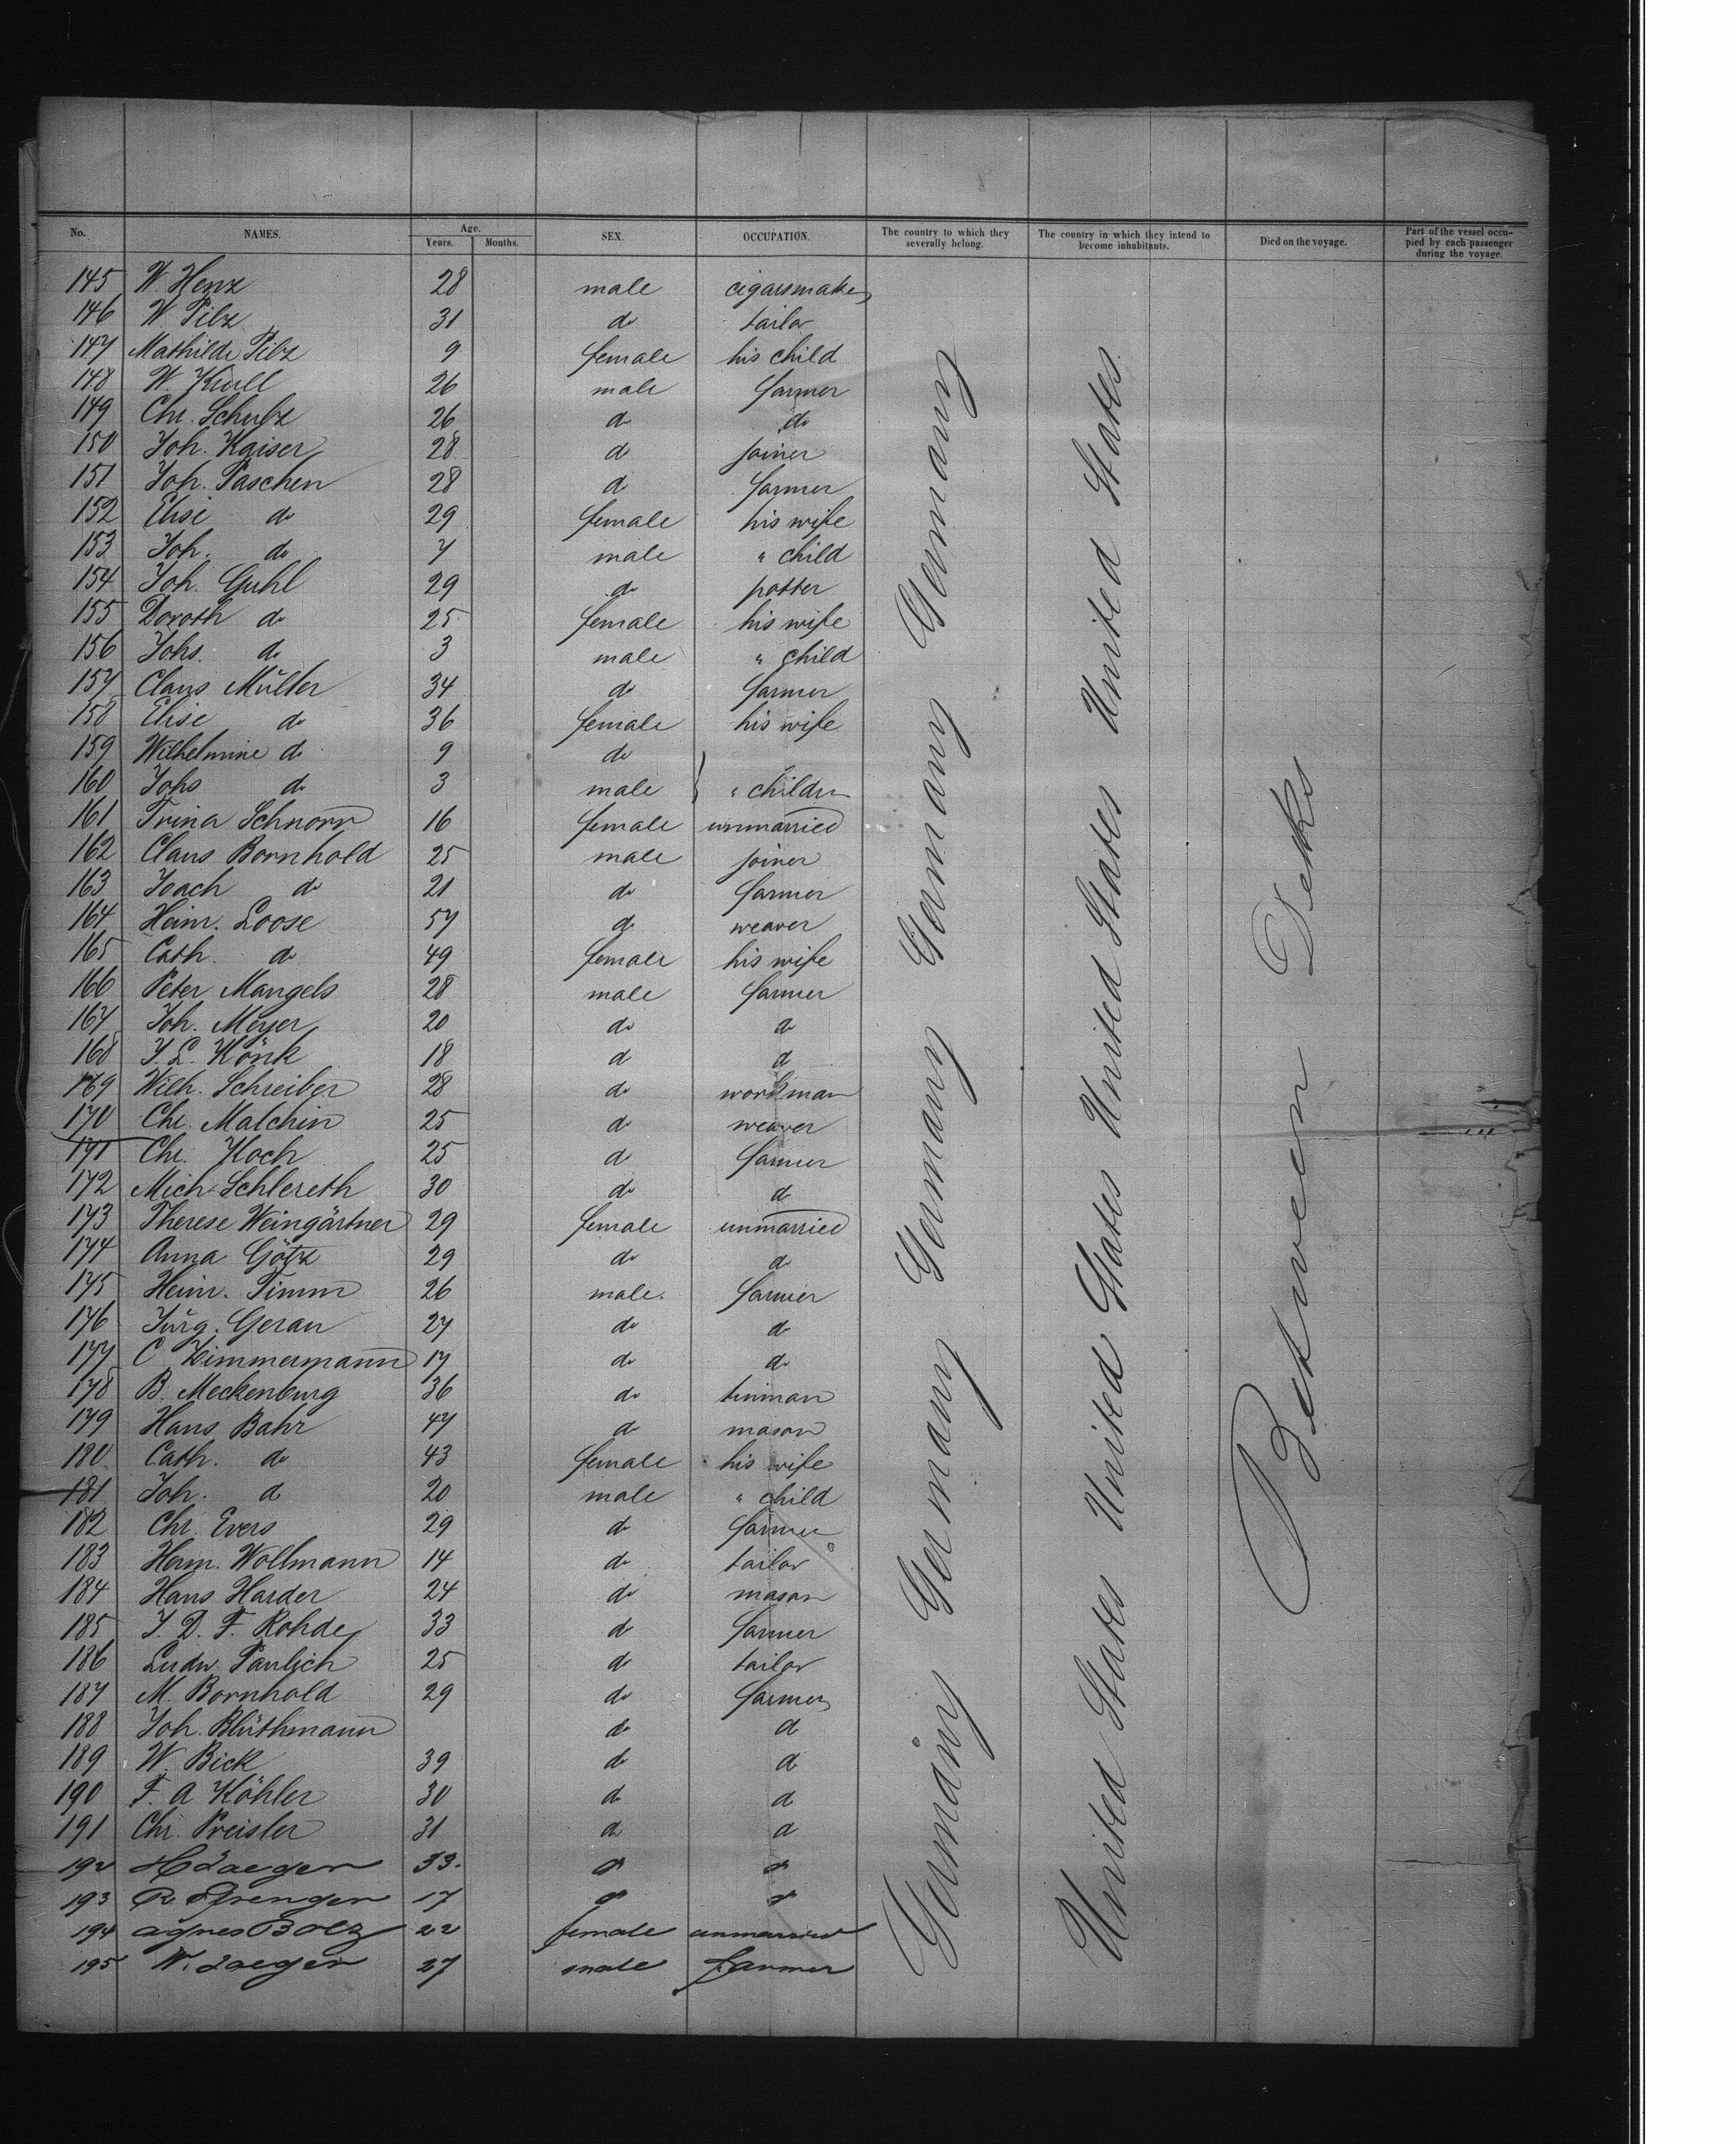 No. NAMES. Age. Years. Months. SEX. OCCUPATION. The country to which they severally belong. The country in which they intend to become inhabitants. Died on the voyage. Part of the vessel occupied by each passenger during the voyage.
145 W. Henz 28 male cigarsmaker
146 W. Pilz 31 do tailor
147 Mathilde Pilz 9 female his child
148 W. Krull 26 male farmer
149 Chr. Schulz 26 do do
150 Joh. Kaiser 28 do joiner
151 Joh. Paschen 28 do farmer
152 Elise do 29 female his wife
153 Joh. do 7 male " child
154 Joh. Guhl 29 do potter
155 Doroth do 25 female his wife
156 Johs. do 3 male " child
157 Claus Müller 34 do farmer
158 Elise do 36 female his wife
159 Wilhelmine do 9 do
160 Johs do 3 male " children
161 Trina Schnorr 16 female unmarried
162 Claus Bornhold 25 male joiner
163 Joach do 21 do farmer
164 Heinr. Loose 57 do weaver
165 Cath. do 49 female his wife
166 Peter Mangels 28 male farmer
167 Joh. Meyer 20 do do
168 J. L. Könk 18 do do
169 Wilh. Schreiber 28 do workman
170 Chr. Malchin 25 do weaver
171 Chr. Koch 25 do farmer
172 Mich. Schlereth 30 do do
173 Therese Weingärtner 29 female unmarried
174 Anna Götz 29 do do
175 Heinr. Timm 26 male farmer
176 Jürg. Gerau 27 do do
177 C Zimmermann 17 do do
178 B. Meckenburg 36 do tinman
179 Hans Bahr 47 do mason
180 Cath. do 43 female his wife
181 Joh. do 20 male " child
182 Chr. Evers 29 do farmer
183 Herm. Wollmann 14 do tailor
184 Hans Harder 24 do mason
185 J. D. F. Rohde 33 do farmer
186 Ludw. Paulich 25 do tailor
187 M. Bornhold 29 do farmer
188 Joh. Blüthmann do do
189 W. Bick 39 do do
190 F. A Köhler 30 do do
191 Chr. Preisler 31 do do
192 H Jaeger 33. do do
193 R. 17 do do
194 Agnes Bolz 22 female unmarried
195 W. Jaeger 27 male farmer
Germany Germany Germany Germany Germany
United States United States United States United States
Between Deks